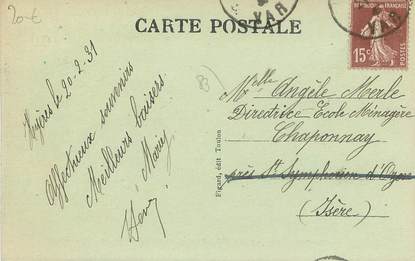 20€
CARTE POSTALE
VAR
VAR
REPUBLIQUE FRANCAISE
15c
Hyères le 20-2-31
Affectueux souvenirs
Meilleurs baisers.
Marcy
Henry
Figard, édit Toulon
Melle Angèle Merle
Directrice Ecole Ménagère
Chaponnay
près St Symphorien d'Ozon
(Isère)